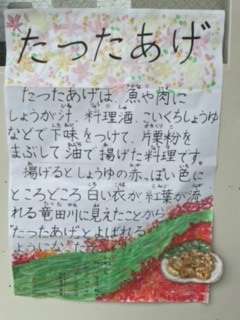 たったあげ
たつたあげは、魚や肉に
しょうが汁、料理酒、こいくちしょうゆ
などで下味をつけて、片栗粉を
まぶして油で揚げた料理です。
揚げるとしょうゆの赤っぽい色に
ところどころ白い衣が紅葉が流
れる竜田川に見えたことから
"たつたあげ"とよばれる
ようになった